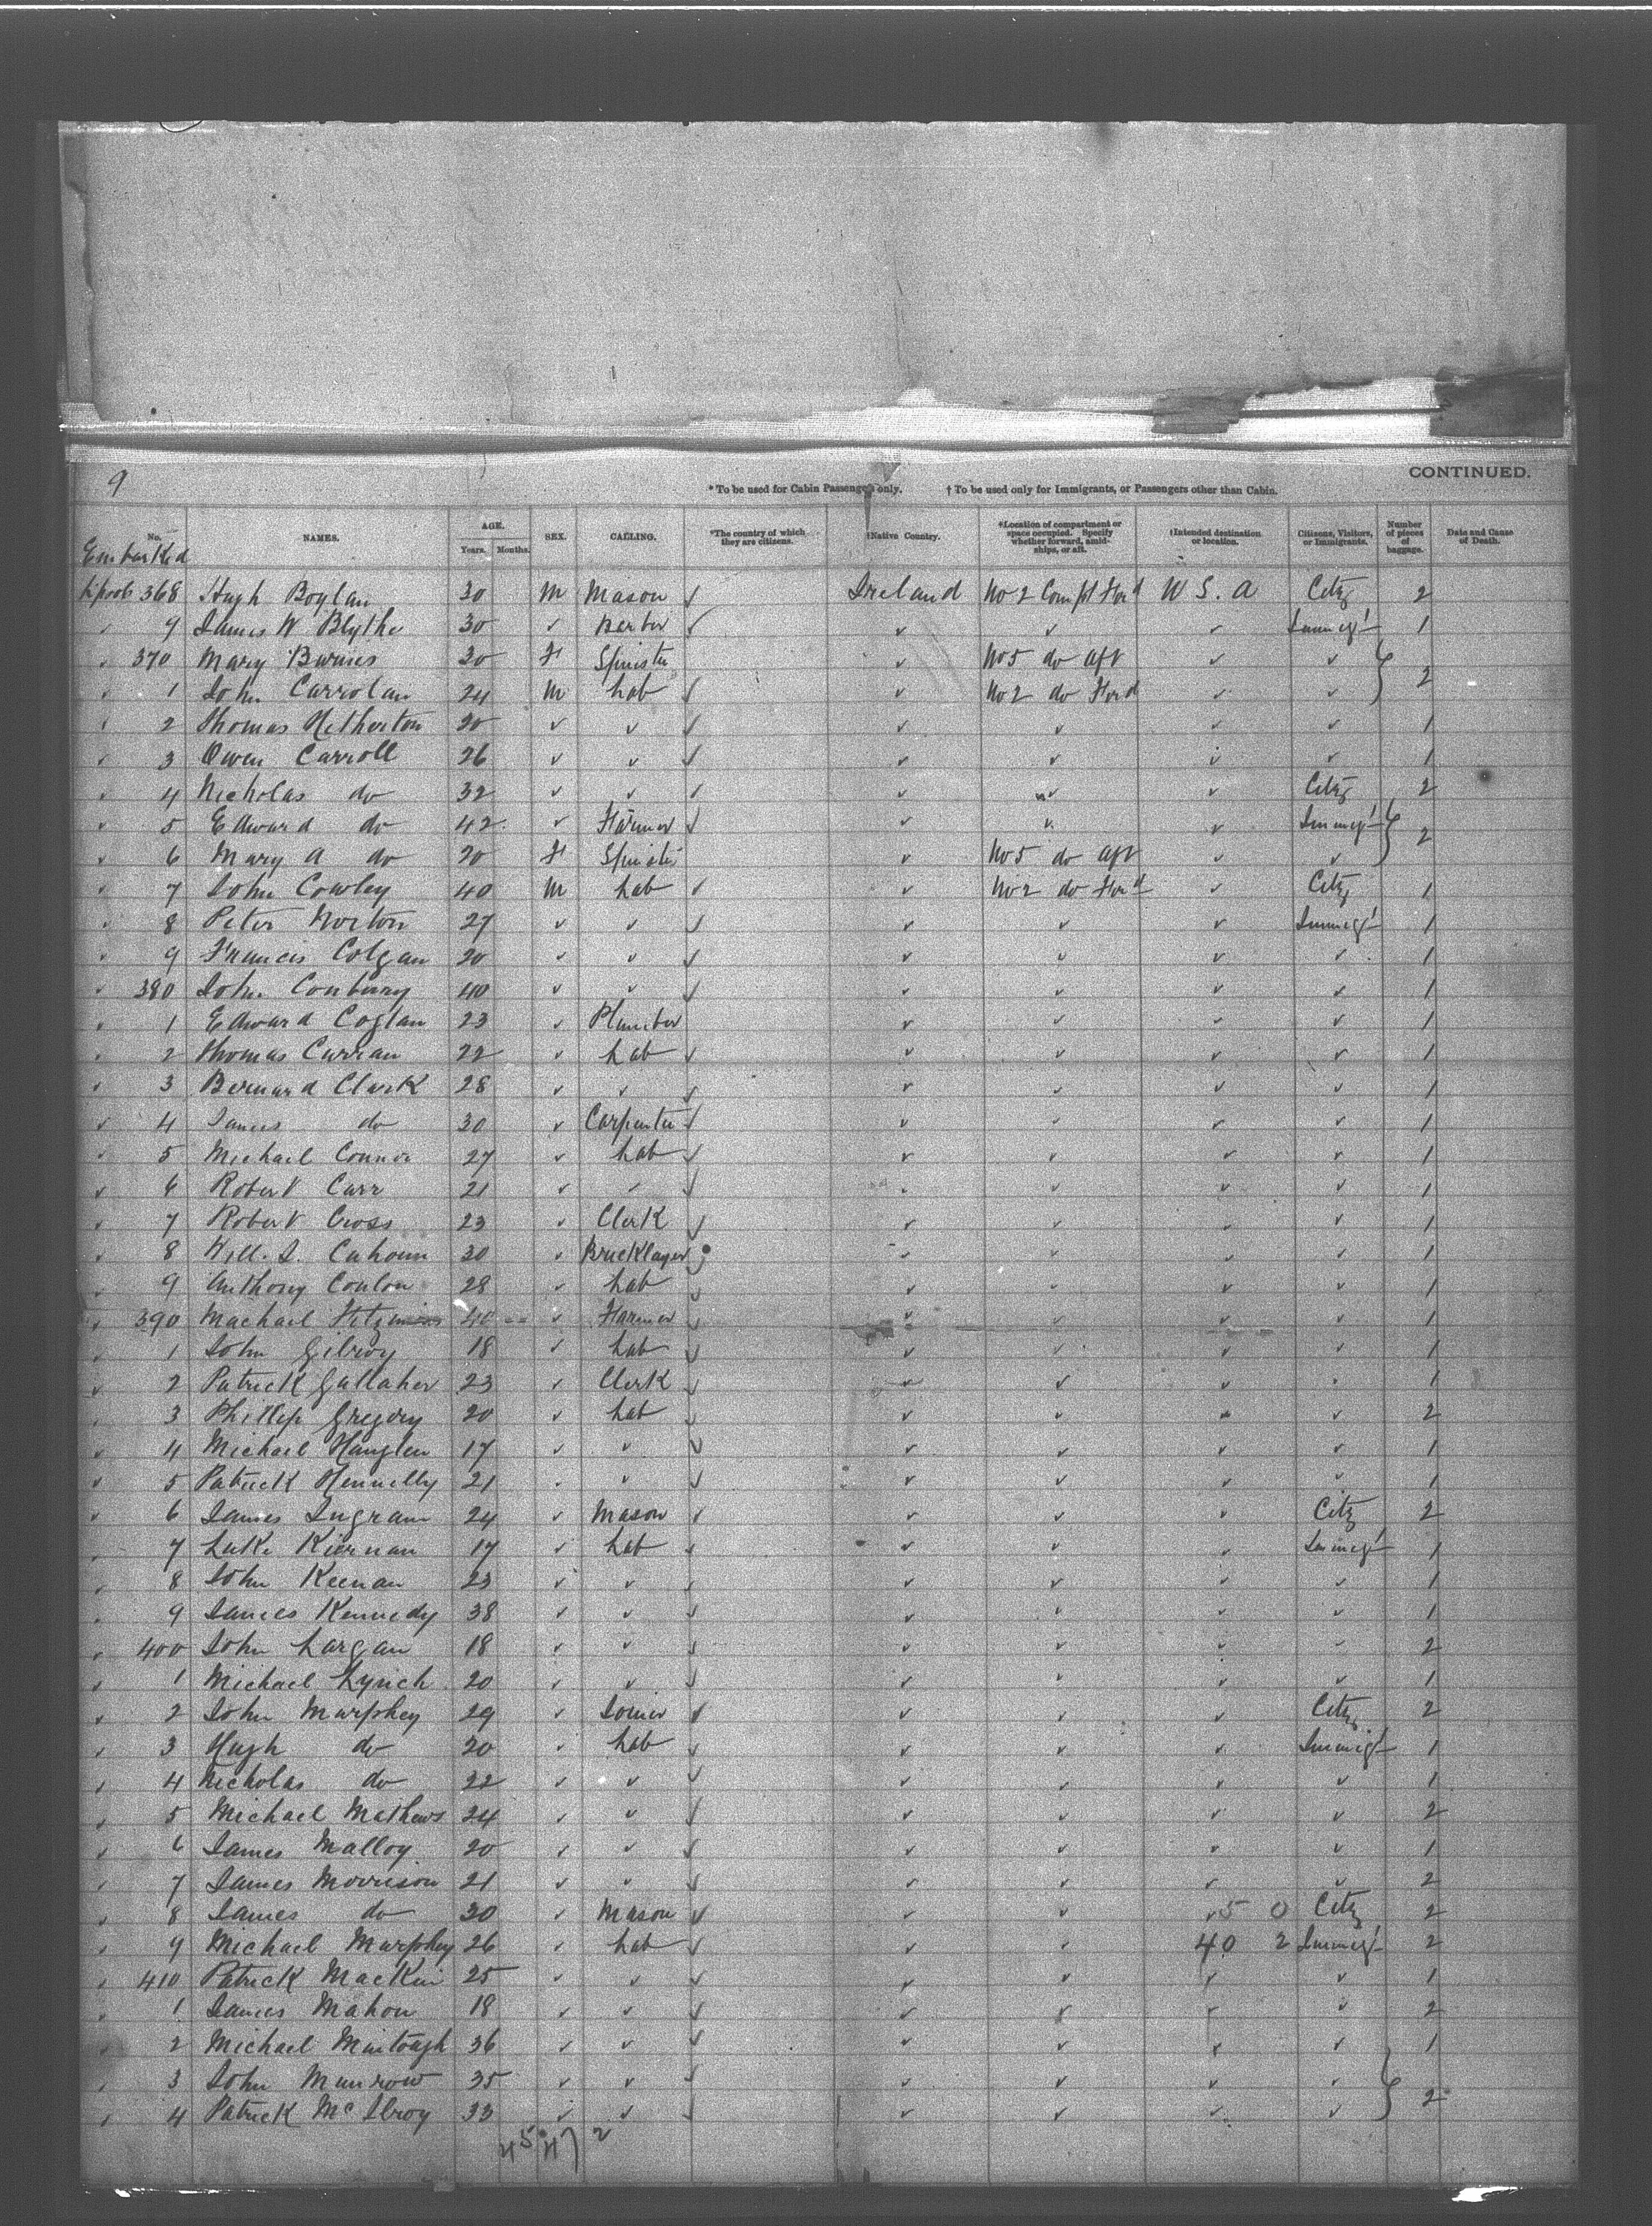 9
CONTINUED.
*To be used for Cabin Passengers only. † To be used only for Immigrants, or Passengers other than Cabin.
No. NAMES. AGE. Years. Months. SEX. CALLING. *The country of which they are citizens. †Native Country. †Location of compartment or space occupied. Specify whether forward, amidships, or aft. †Intended destination or location. Citizens, Visitors, or Immigrants. Number of pieces of baggage. Date and Cause of Death.
Embarked
L'pool 368 Hugh Boylan 30 M Mason ✓ Ireland No 2 Compt Ford U S. A Citz 2
✓ 9 James W Blythe 30 ✓ Barber ✓ ✓ ✓ ✓ Immigt 1
✓ 370 Mary Burnes 30 F Spinster ✓ No 5 do aft ✓ ✓
✓ 1 John Carrolan 24 M Lab ✓ ✓ No 2 do Ford ✓ ✓ } 2
✓ 2 Thomas Netherton 20 ✓ ✓ ✓ ✓ ✓ ✓ ✓ 1
✓ 3 Owen Carroll 26 ✓ ✓ ✓ ✓ ✓ ✓ ✓ 1
✓ 4 Nicholas do 32 ✓ ✓ ✓ ✓ ✓ ✓ Citz 2
✓ 5 Edward do 42 ✓ Farmer ✓ ✓ ✓ ✓ Immigt
✓ 6 Mary A do 20 F Spinster ✓ No 5 do aft ✓ ✓ } 2
✓ 7 John Cowley 40 M Lab ✓ ✓ No 2 do Ford ✓ Citz 1
✓ 8 Peter Norton 27 ✓ ✓ ✓ ✓ ✓ ✓ Immigt 1
✓ 9 Francis Colgan 20 ✓ ✓ ✓ ✓ ✓ ✓ ✓ 1
✓ 380 John 40 ✓ ✓ ✓ ✓ ✓ ✓ ✓ 1
✓ 1 Edward Coglan 23 ✓ Plumber ✓ ✓ ✓ ✓ 1
✓ 2 Thomas Curran 22 ✓ Lab ✓ ✓ ✓ ✓ ✓ 1
✓ 3 Bernard Clark 28 ✓ ✓ ✓ ✓ ✓ ✓ ✓ 1
✓ 4 James do 30 ✓ Carpenter ✓ ✓ ✓ ✓ ✓ 1
✓ 5 Michael Connor 27 ✓ Lab ✓ ✓ ✓ ✓ ✓ 1
✓ 6 Robert Carr 21 ✓ ✓ ✓ ✓ ✓ ✓ ✓ 1
✓ 7 Robert Cross 23 ✓ Clerk ✓ ✓ ✓ ✓ ✓ 1
✓ 8 Will. J. Cahoun 30 ✓ Bricklayer ✓ ✓ ✓ ✓ ✓ 1
✓ 9 Anthony Conlon 28 ✓ Lab ✓ ✓ ✓ ✓ ✓ 1
✓ 390 Machael 40 ✓ Farmer ✓ ✓ ✓ ✓ ✓ 1
✓ 1 John Gilroy 18 ✓ Lab ✓ ✓ ✓ ✓ ✓ 1
✓ 2 Patrick Gallaher 23 ✓ Clerk ✓ ✓ ✓ ✓ ✓ 1
✓ 3 Phillip Gregory 20 ✓ Lab ✓ ✓ ✓ ✓ ✓ 2
✓ 4 Michael Hanglen 17 ✓ ✓ ✓ ✓ ✓ ✓ ✓ 1
✓ 5 Patrick Hennelly 21 ✓ ✓ ✓ ✓ ✓ ✓ ✓ 1
✓ 6 James Ingram 24 ✓ Mason ✓ ✓ ✓ ✓ Citz 2
✓ 7 Luke Kiernan 17 ✓ Lab ✓ ✓ ✓ ✓ Immigt 1
✓ 8 John Keenan 23 ✓ ✓ ✓ ✓ ✓ ✓ ✓ 1
✓ 9 James Kennedy 38 ✓ ✓ ✓ ✓ ✓ ✓ ✓ 1
✓ 400 John Largan 18 ✓ ✓ ✓ ✓ ✓ ✓ ✓ 2
✓ 1 Michael Lynch 20 ✓ ✓ ✓ ✓ ✓ ✓ ✓ 1
✓ 2 John Murphey 29 ✓ Joiner ✓ ✓ ✓ ✓ Citz 2
✓ 3 Hugh do 20 ✓ Lab ✓ ✓ ✓ ✓ Immigt 1
✓ 4 Nicholas do 22 ✓ ✓ ✓ ✓ ✓ ✓ ✓ 1
✓ 5 Michael Mathews 24 ✓ ✓ ✓ ✓ ✓ ✓ ✓ 2
✓ 6 James Malloy 20 ✓ ✓ ✓ ✓ ✓ ✓ ✓ 1
✓ 7 James Morrison 21 ✓ ✓ ✓ ✓ ✓ ✓ ✓ 2
✓ 8 James do 30 ✓ Mason ✓ ✓ ✓ ✓ 5 0 Citz 2
✓ 9 Michael Murphey 26 ✓ Lab ✓ ✓ ✓ 40 2 Immigt 2
✓ 410 Patrick Mackin 25 ✓ ✓ ✓ ✓ ✓ ✓ ✓ 1
✓ 1 James Mahon 18 ✓ ✓ ✓ ✓ ✓ ✓ ✓ 2
✓ 2 Michael Muntough 36 ✓ ✓ ✓ ✓ ✓ ✓ ✓ 1
✓ 3 John Munrow 35 ✓ ✓ ✓ ✓ ✓ ✓ ✓
✓ 4 Patrick McIlroy 33 ✓ ✓ ✓ ✓ ✓ ✓ ✓ } 2
45 47 2